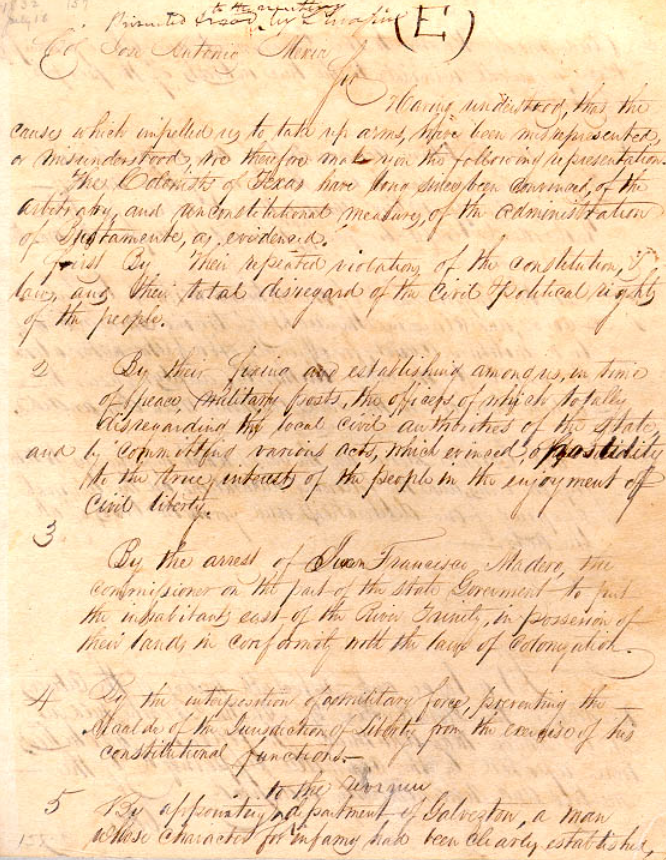 1832 157
July 18
to the meeting
Presented & read by (E)
Col Jose Antonio Mexia
Sir
Having understood, that the
causes which impelled us to take up arms, have been misrepresented,
or misunderstood, we therefore make you the following representation.
The Colonists of Texas have long since been convinced, of the
arbitrary, and unconstitutional measures, of the administration
of Bustamente, as evidenced.
First By Their repeated violations of the constitution, &
laws, and their total disregard of the civil & political rights
of the people.
2 By their fixing and establishing among us, in time
of peace, military posts, the officers of which totally
disregarding the local civil authorities of the State,
and by committing various acts, which evinced, opposition
to the true interests of the people in the enjoyment of
civil liberty.
3
By the arrest of Juan Francisco, Madero, the
commissioner on the part of the state Goverment to put
the inhabitants east of the River Trinity, in possession of
their lands in conformity with the laws of Colonization.
4 By the interposition of a military force, preventing the
Alcalde of the Jurisdiction of Liberty from the exercise of his
constitutional functions.
to the revenue
5 By appointing department of Galveston, a man
whose character for infamy had been clearly established,